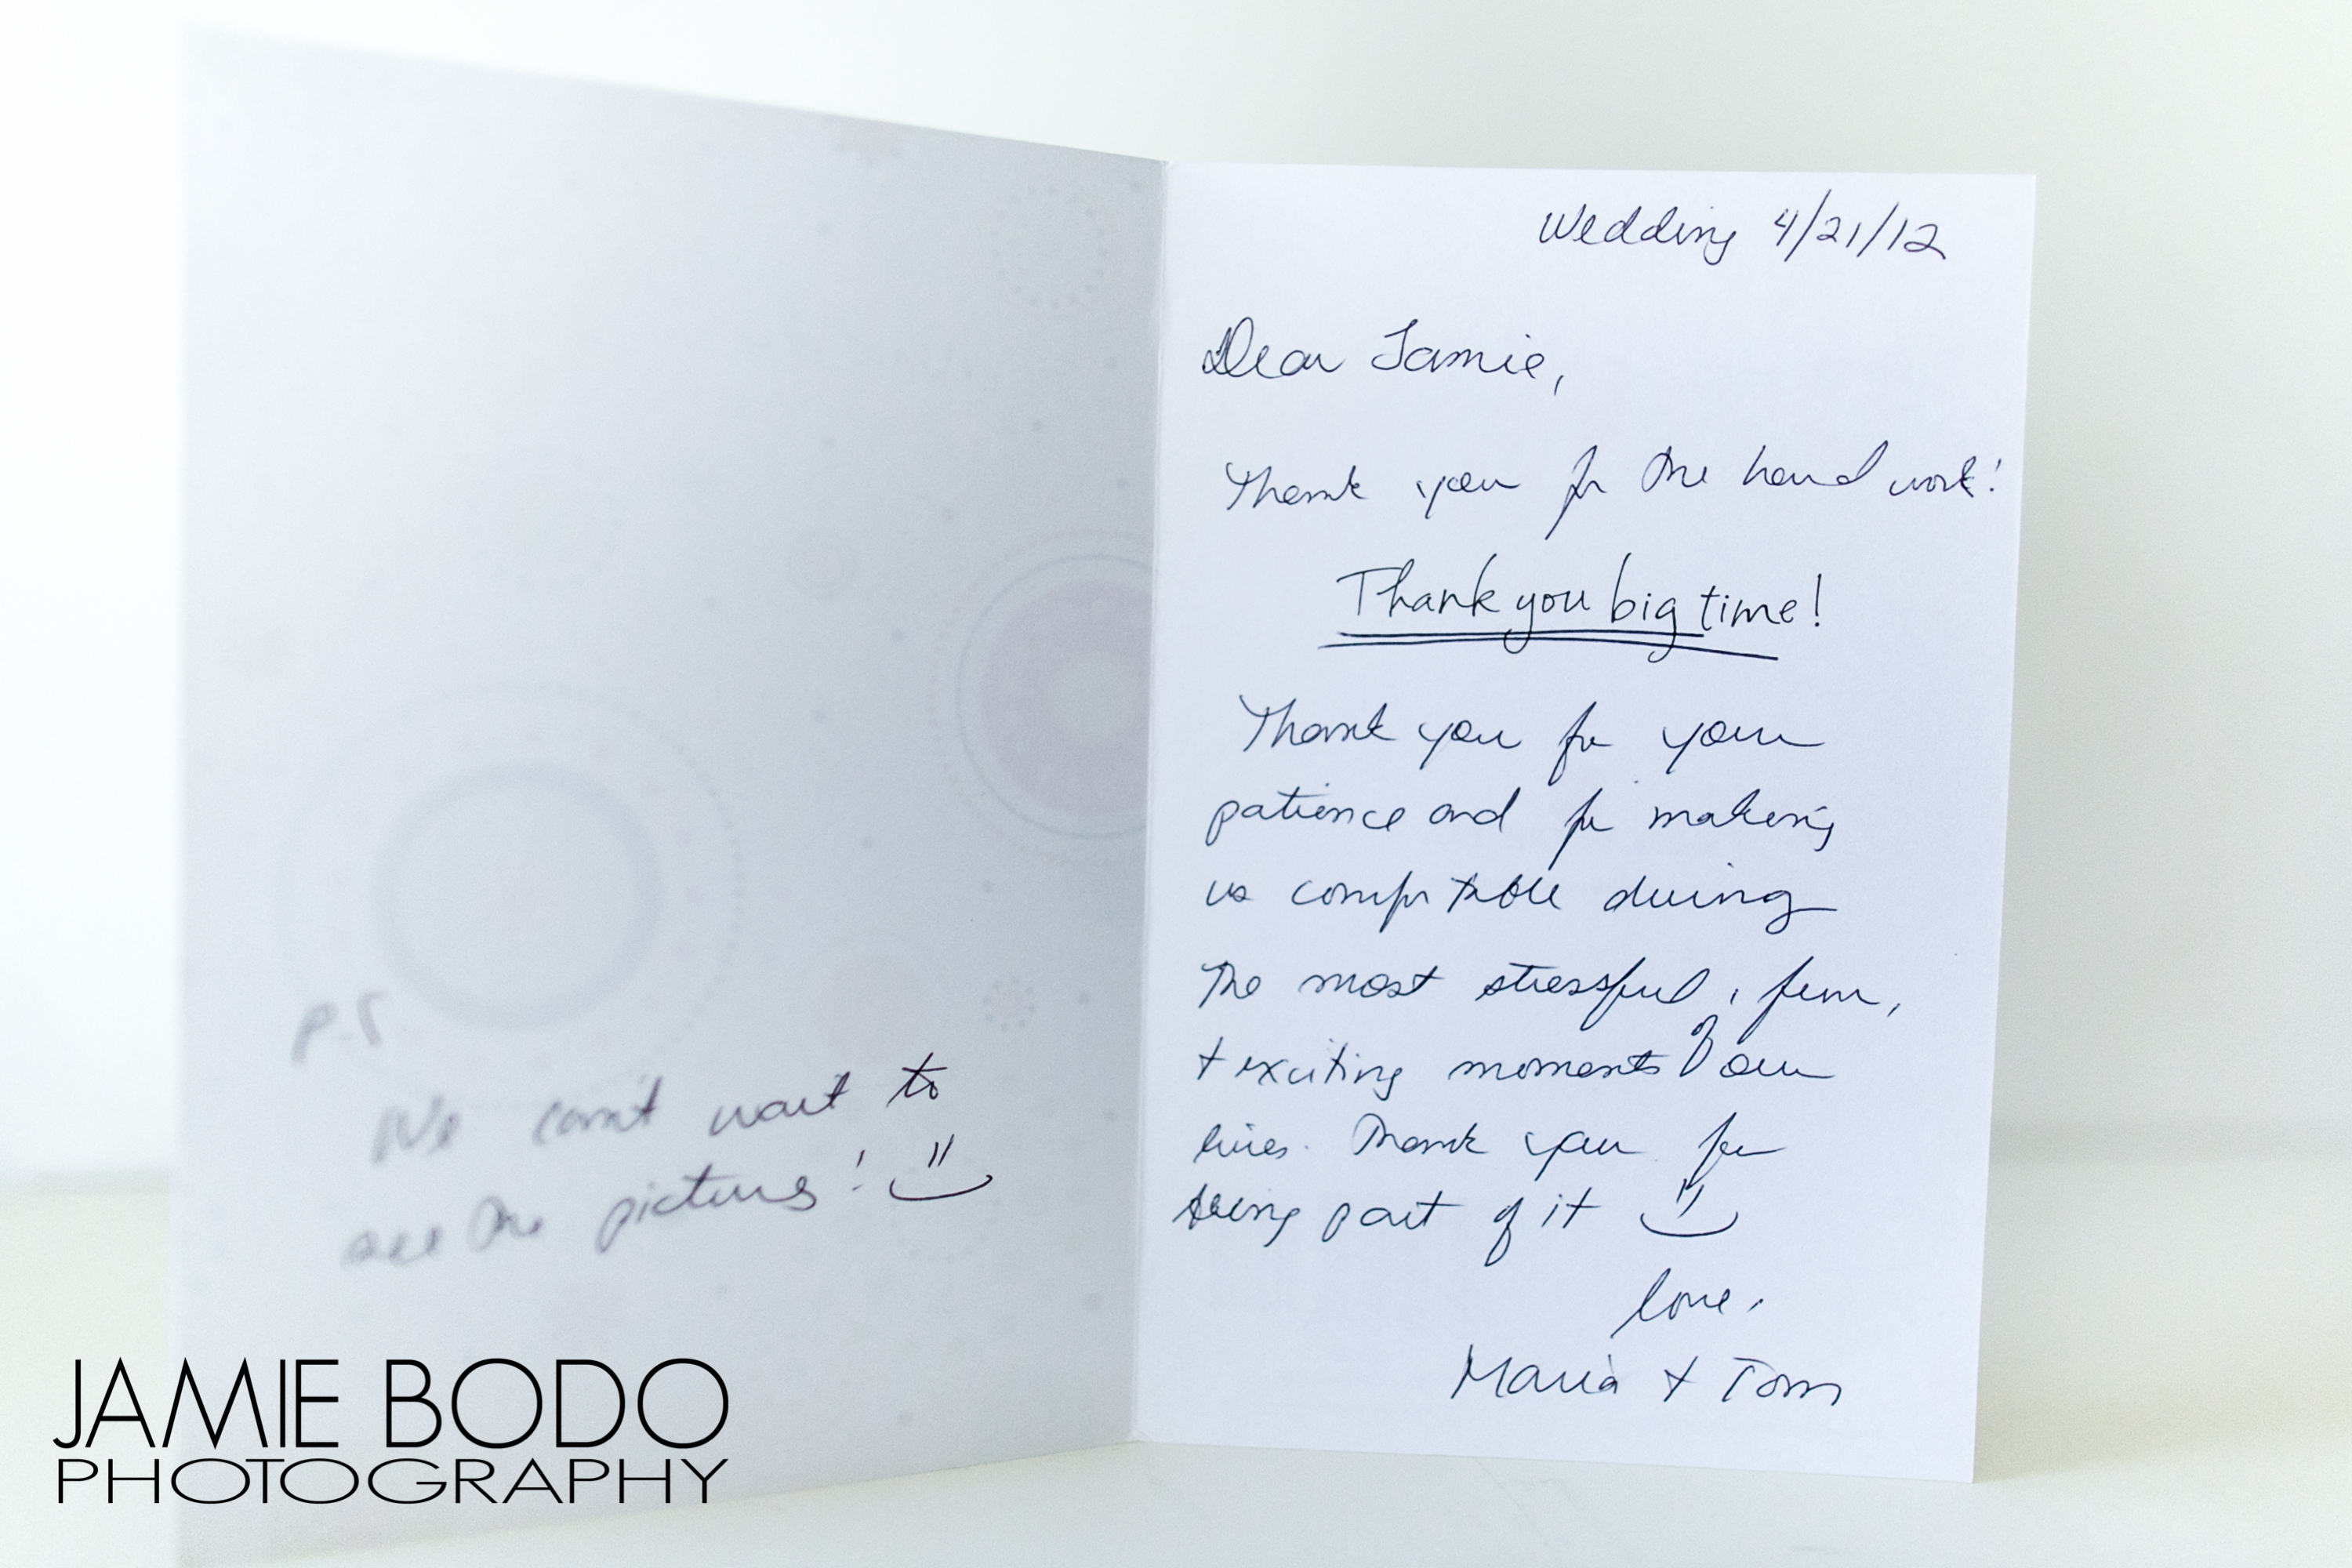 P.S
We can't wait to
see the pictures! :)
Wedding 4/21/12
Dear Jamie,
Thank you for the hard work!
Thank you big time!
Thank you for your
patience and for making
us comfortable during
the most stressful, fun,
+ exciting moments of our
lives. Thank you for
being part of it :)
love,
Maria + Tom
JAMIE BODO
PHOTOGRAPHY